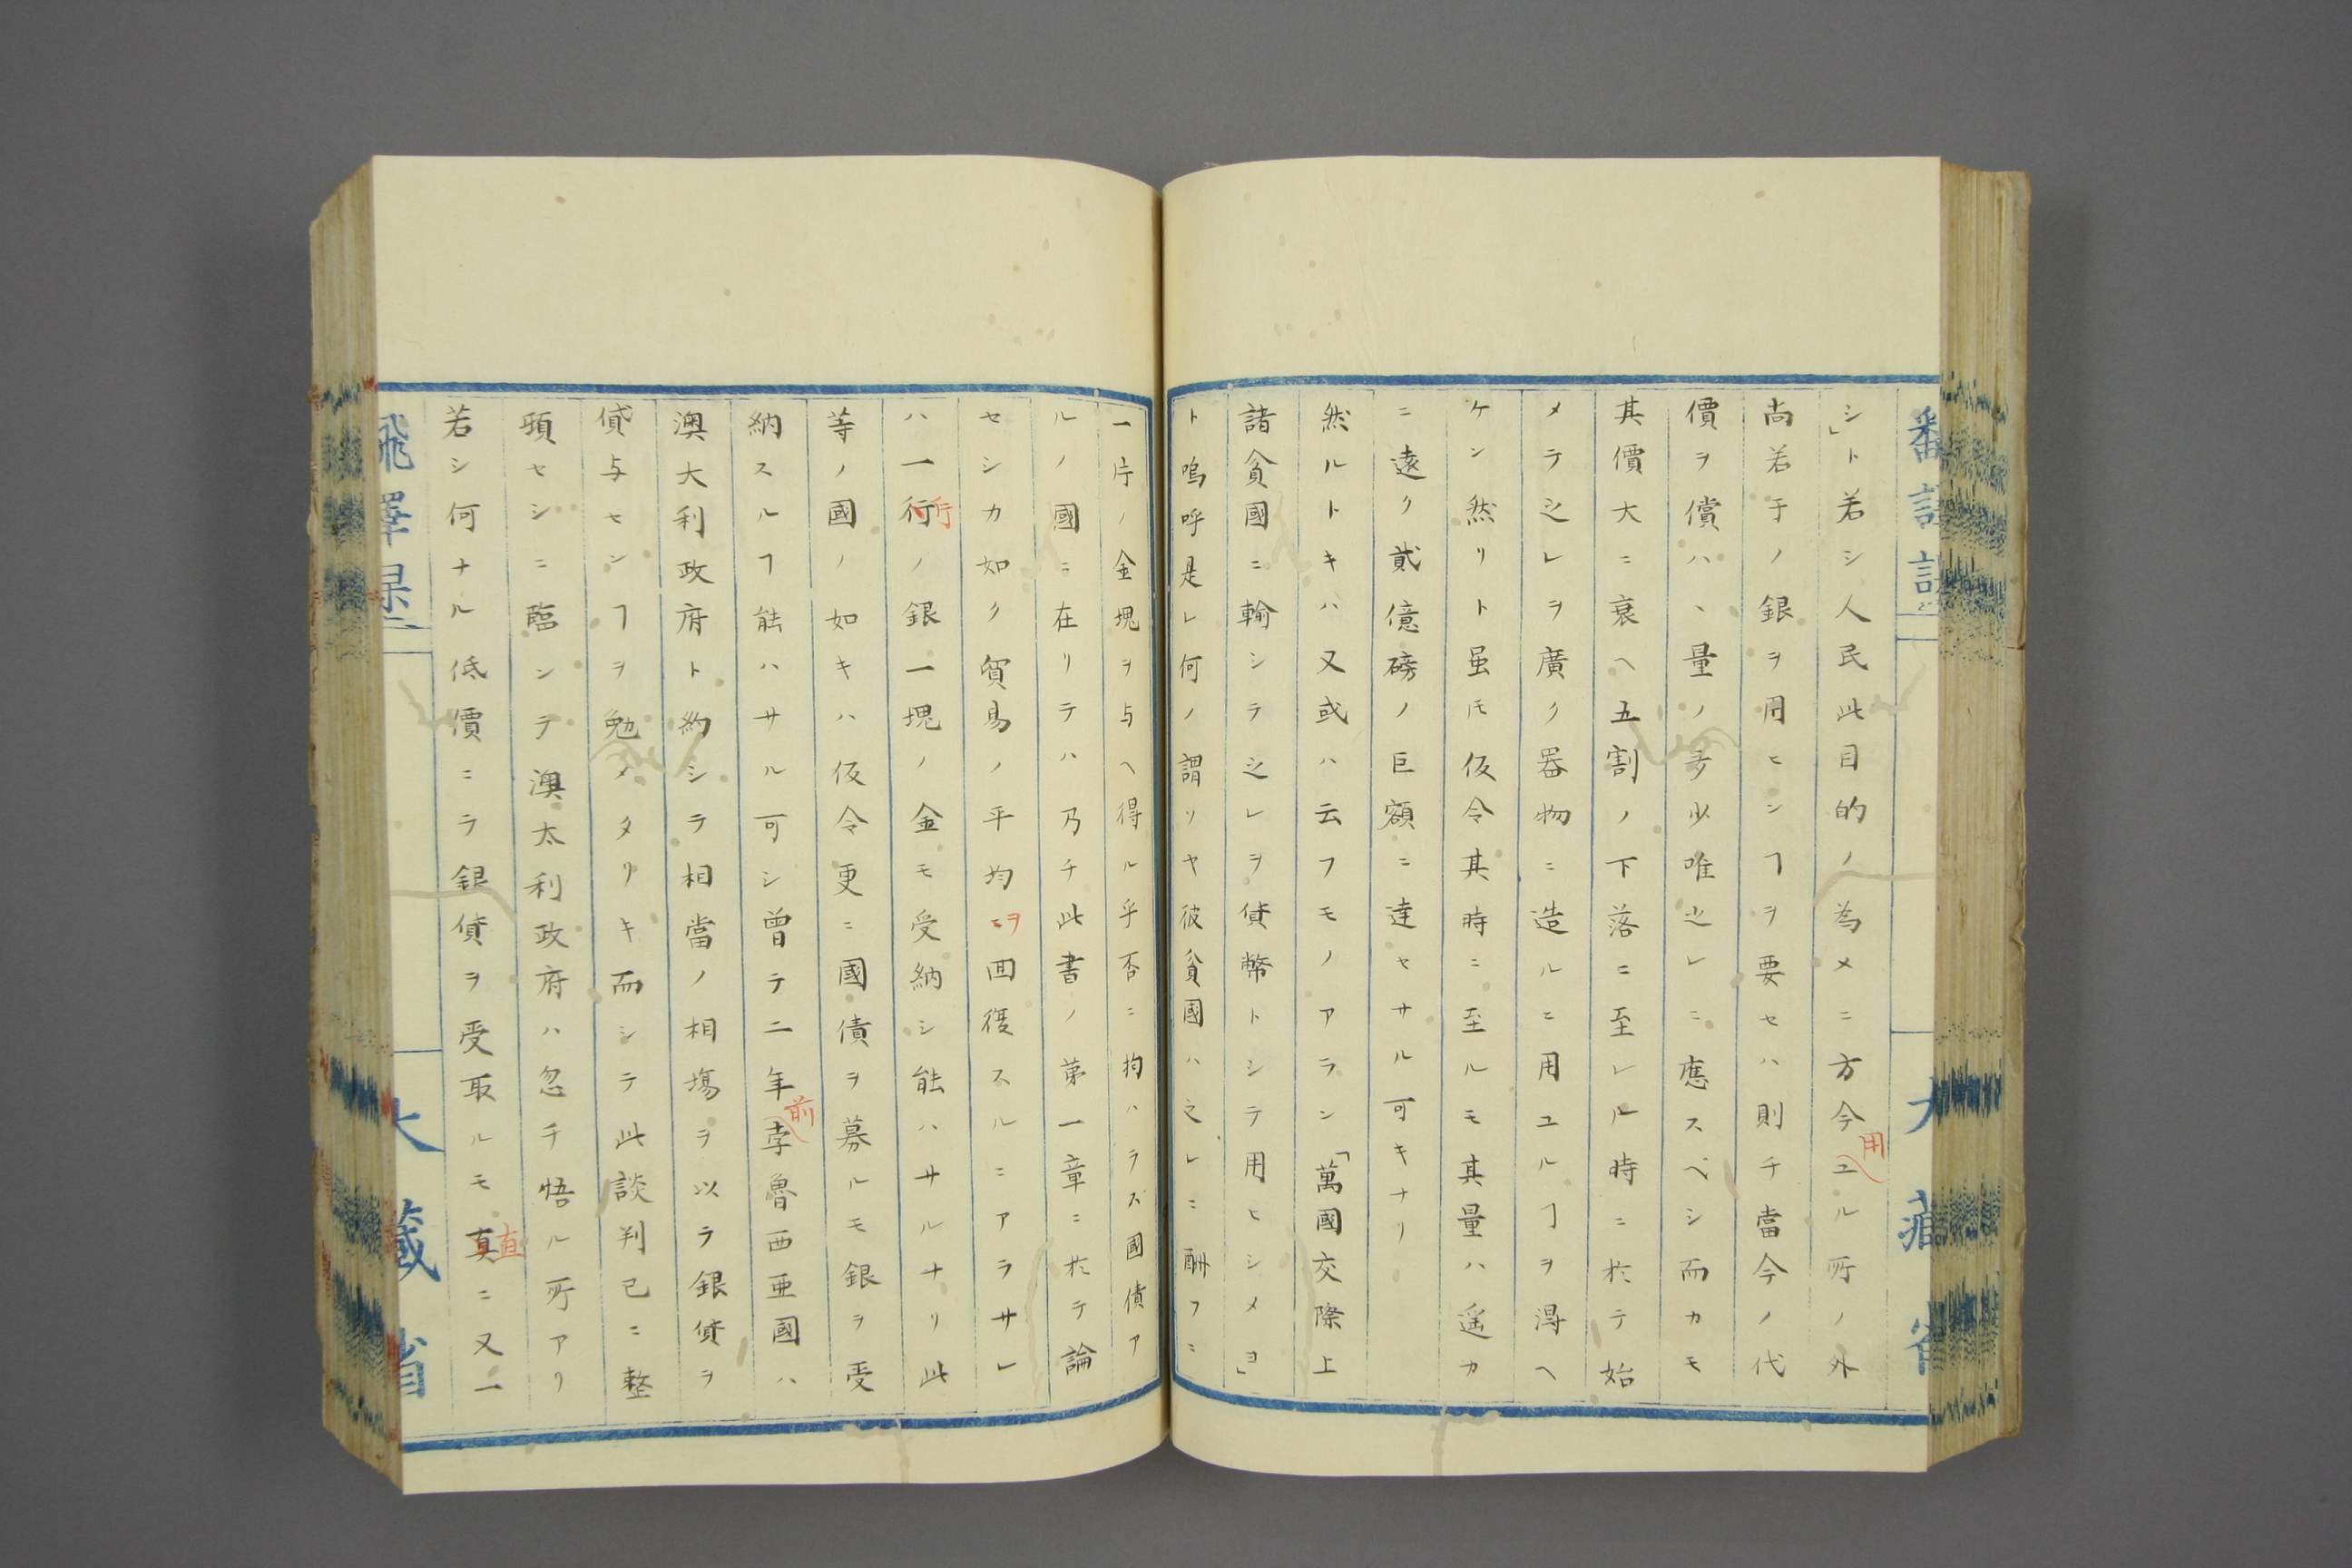 シ」ト若シ人民此目的ノ為メニ方今用ユル所ノ外
尚若干ノ銀ヲ用ヒンヿヲ要セハ則チ當今ノ代
價ヲ償ハヽ量ノ多少唯之レニ應スベシ而カモ
其價大ニ衰ヘ五割ノ下落ニ至レル時ニ於テ始
メテ之レヲ廣ク器物ニ造ルニ用ユルヿヲ得ヘ
ケン然リト虽𪜈仮令其時ニ至ルモ其量ハ遥カ
ニ遠ク貮億磅ノ巨額ニ達セサル可キナリ
然ルトキハ又或ハ云フモノアラン「萬國交際上
諸貧國ニ輸シテ之レヲ貨幣トシテ用ヒシメヨ」
ト嗚呼是レ何ノ謂ソヤ彼貧國ハ之レニ酬フニ
一片ノ金塊ヲ与ヘ得ル乎否ニ拘ハラズ國債ア
ルノ國ニ在リテハ乃チ此書ノ第一章ニ於テ論
セシカ如ク貿易ノ平均ニヲ囬復スルニアラサレ
ハ一行片ノ銀一塊ノ金モ受納シ能ハサルナリ此
等ノ國ノ如キハ仮令更ニ國債ヲ募ルモ銀ヲ受
納スルヿ能ハサル可シ曽テ二年前孛魯西亜國ハ
澳大利政府ト約シテ相當ノ相場ヲ以テ銀貨ヲ
貸与センヿヲ勉メタリキ而シテ此談判已ニ整
頓セシニ臨ンテ澳太利政府ハ忽チ悟ル所アリ
若シ何ナル低價ニテ銀貨ヲ受取ルモ真直ニ又一
大藏省
大藏省